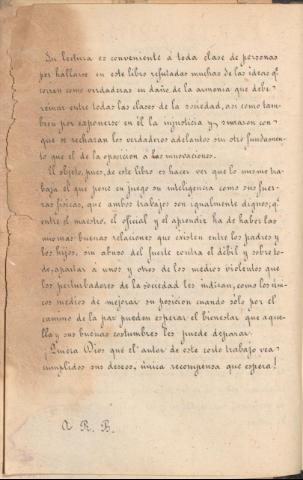 Su lectura es conveniente á toda clase de personas
por hallarse en este libro refutadas muchas de las ideas q.
corren como verdaderas en daño de la armonia que debe
reinar entre todas las clases de la sociedad, asi como tam-
bien por exponerse en él la injusticia y sinrazon con
que se rechazan los verdaderos adelantos sin otro fundamen-
to que el de la oposicion á las innovaciones.
El objeto, pues, de este libro es hacer ver que lo mismo tra-
baja el que pone en juego su inteligencia como sus fuer-
zas fisicas, que ambos trabajos son igualmente dignos; q.
entre el maestro, el oficial y el aprendiz ha de haber las
mismas buenas relaciones que existen entre los padres y
los hijos, sin abuso del fuerte contra el débil y sobre to-
do, apartar á unos y otros de los medios violentos que
los perturbadores de la sociedad les indican, como los úni-
cos medios de mejorar su posicion cuando solo por el
camino de la paz pueden esperar el bienestar que aque-
lla y sus buenas costumbres les puede deparar.
¡Quiera Dios que el autor de este corto trabajo vea
cumplidos sus deseos, única recompensa que espera!
A. R. B.